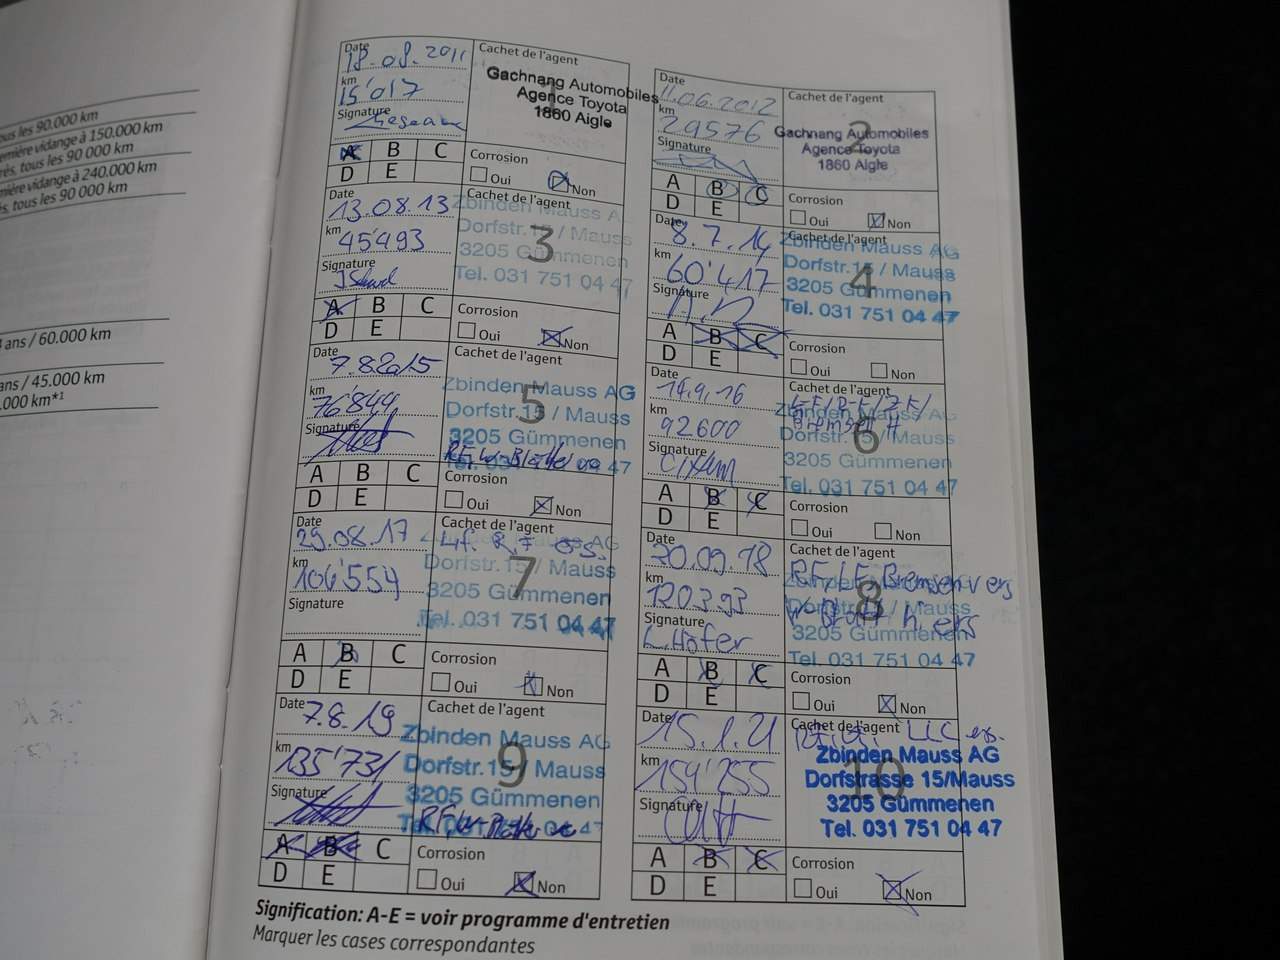 ous les 90.000 km
emière vidange à 150.000 km
rés, tous les 90 000 km
mière vidange à 240.000 km
s, tous les 90 000 km
ans / 60.000 km
ans / 45.000 km
.000 km*1
Date 18.08.2011
km 15'017
Signature
Cachet de l'agent
1
Gachnang Automobiles
Agence Toyota
1860 Aigle
A B C
D E
Corrosion
Oui Non
Date 11.06.2012
km 29576
Signature
Cachet de l'agent
2
Gachnang Automobiles
Agence Toyota
1860 Aigle
A B C
D E
Corrosion
Oui Non
Date 13.08.13
km 45'493
Signature
Cachet de l'agent
3
Zbinden Mauss AG
Dorfstr. 15 / Mauss
3205 Gümmenen
Tel. 031 751 04 47
A B C
D E
Corrosion
Oui Non
Date 8.7.14
km 60'417
Signature
Cachet de l'agent
4
Zbinden Mauss AG
Dorfstr. 15 / Mauss
3205 Gümmenen
Tel. 031 751 04 47
A B C
D E
Corrosion
Oui Non
Date 7.8.2015
km 76'844
Signature
Cachet de l'agent
5
Zbinden Mauss AG
Dorfstr. 15 / Mauss
3205 Gümmenen
Tel. 031 751 04 47
A B C
D E
Corrosion
Oui Non
Date 14.9.16
km 92600
Signature
Cachet de l'agent
6
Zbinden Mauss AG
Dorfstr. 15 / Mauss
3205 Gümmenen
Tel. 031 751 04 47
A B C
D E
Corrosion
Oui Non
Date 29.08.17
km 106'554
Signature
Cachet de l'agent
7
Dorfstr. 15 / Mauss
3205 Gümmenen
Tel. 031 751 04 47
A B C
D E
Corrosion
Oui Non
Date 20.09.18
km 120393
Signature L. Hofer
Cachet de l'agent
8
RF/LF. Bremsen vers
3205 Gümmenen
Tel. 031 751 04 47
A B C
D E
Corrosion
Oui Non
Date 7.8.19
km 135'731
Signature
Cachet de l'agent
9
Zbinden Mauss AG
Dorfstr. 15 / Mauss
3205 Gümmenen
A B C
D E
Corrosion
Oui Non
Date 15.1.21
km 154'255
Signature
Cachet de l'agent
10
Zbinden Mauss AG
Dorfstrasse 15/Mauss
3205 Gümmenen
Tel. 031 751 04 47
A B C
D E
Corrosion
Oui Non
Signification: A-E = voir programme d'entretien
Marquer les cases correspondantes